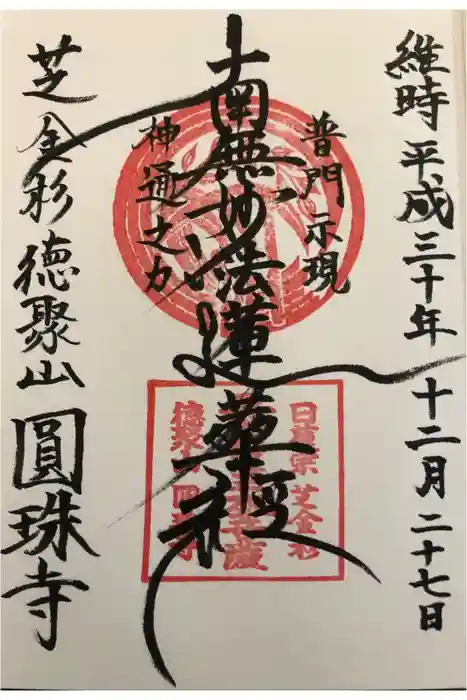 維時 平成三十年 十二月二十七日
普門示現
南無妙法蓮華経
神通之力
芝金杉 徳聚山 圓珠寺
日蓮宗 芝金杉